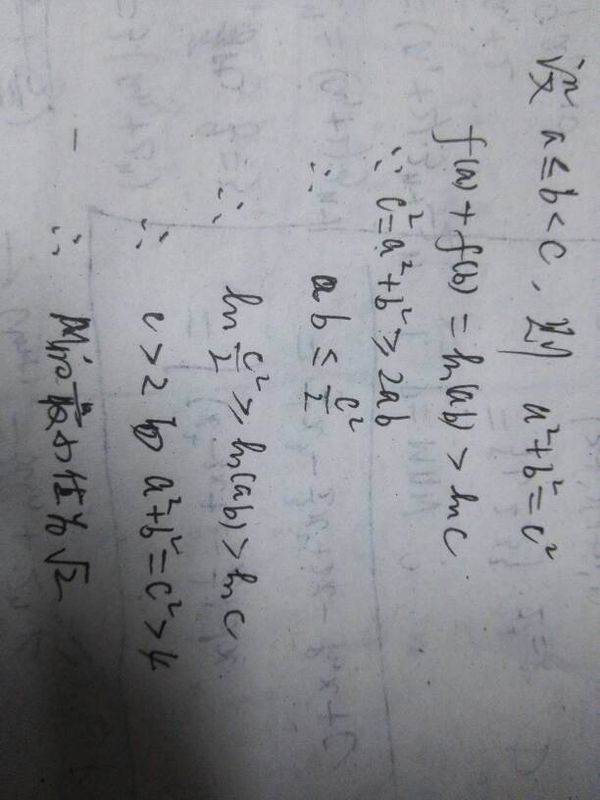 设 a≤b<c, 则 a²+b²=c²
f(a)+f(b)=ln(ab)>lnc
∵ c²=a²+b²≥2ab
∴ ab≤c²/2
∴ ln c²/2≥ln(ab)>lnc
∴ c>2 a²+b²=c²>4
∴ M 最小值为√2